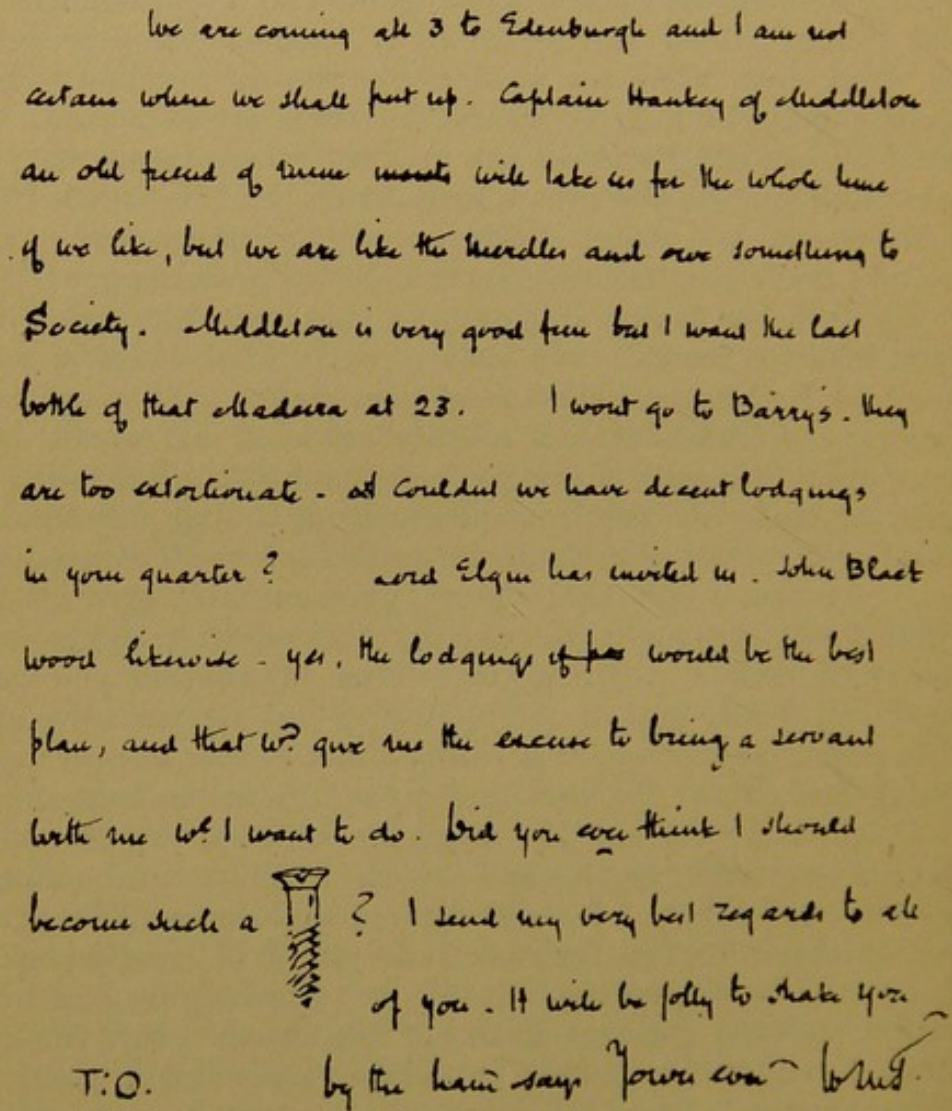 We are coming all 3 to Edenburgh and I am not
certain where we shall put up. Captain Hankey of Middleton
an old friend of mine will take us for the whole time
if we like, but we are like the Needles and owe something to
Society. Middleton is very good fun but I want the last
bottle of that Madeira at 23. I wont go to Barry's. they
are too extortionate - Couldnt we have decent lodgings
in your quarter? Lord Elgin has invited us. John Black
wood likewise - yes, the lodgings would be the best
plan, and that wd. give me the excuse to bring a servant
with me wh. I want to do. Did you ever think I should
become such a ? I send my very best regards to all
of you. It will be jolly to shake you
by the hand says Yours ever WMT.
T.O.